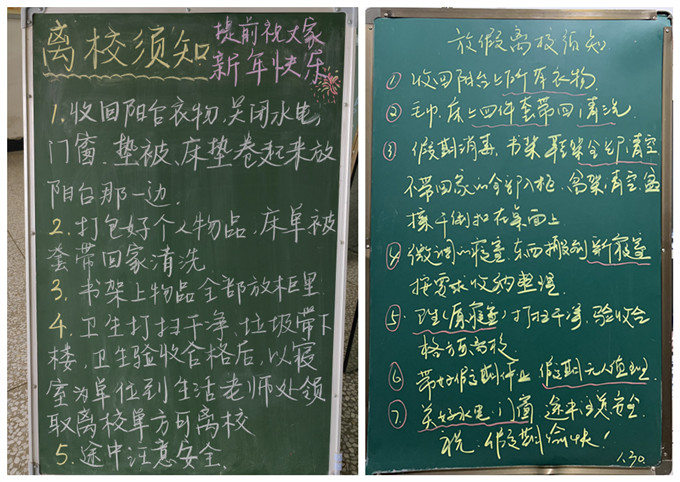 离校须知
提前祝大家
新年快乐
1.收回阳台衣物、关闭水电
门窗、垫被、床垫卷起来放
阳台那一边.
2.打包好个人物品.床单被
套带回家清洗.
3.书架上物品全部放柜里.
4.卫生打扫干净、垃圾带下
楼,卫生验收合格后,以寝
室为单位到生活老师处领
取离校单方可离校
5.途中注意安全.
放假离校须知
① 收回阳台上所有衣物.
② 毛巾.床上四件套带回清洗.
③ 假期消毒,书架、鞋架全部清空
不带回家的全部入柜.
在桌面上
④ 微调的寝室.东西搬到新寝室
按要求收纳整理.
⑤ 卫生(原寝室)打扫干净.验收合
格方可离校
⑥ 带好假期作业 假期无人值班.
⑦ 关好水电门窗 途中注意安全.
祝.假期愉快!
1.30.